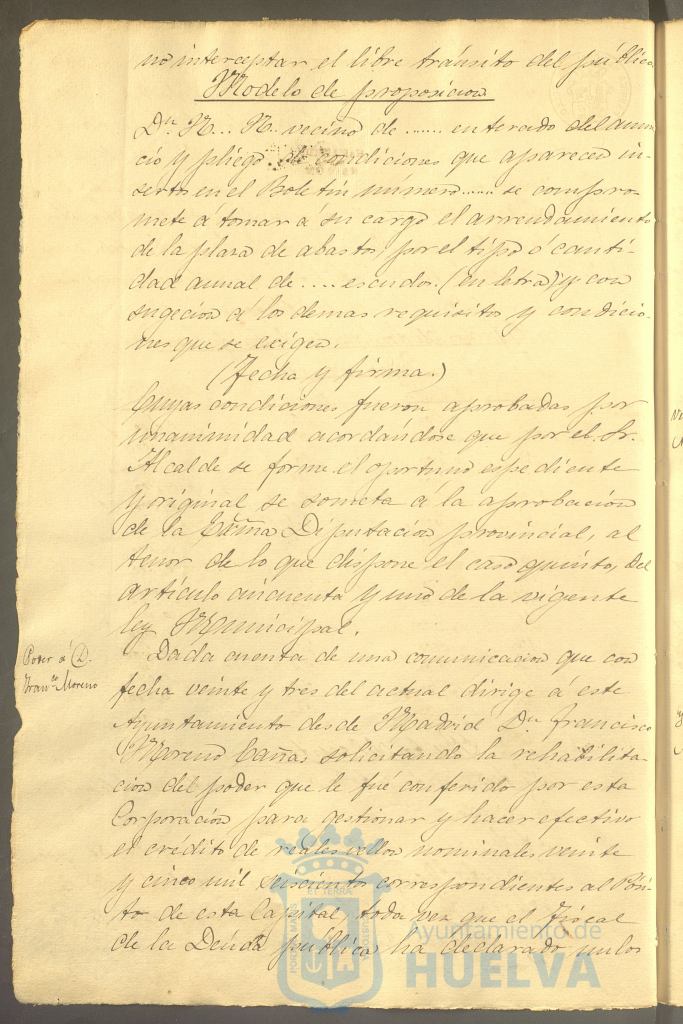 no interceptar el libre tránsito del público
Modelo de proposicion
Dn. N... N. vecino de ....... enterado del anun-
cio y pliego de condiciones que aparecen in-
sertos en el Boletin número...... se compro-
mete a tomar á su cargo el arrendamiento
de la plaza de abastos, por el tipo ó canti-
dad anual de .... escudos. (en letra) y con
sugecion á los demas requisitos y condicio-
nes que se exigen.
(Fecha y firma.)
Cuyas condiciones fueron aprobadas por
unanimidad acordándose que por el Sr.
Alcalde se forme el oportuno espediente
y original se someta á la aprobacion
de la Excma Diputacion provincial, al
tenor de lo que dispone el caso quinto, del
artículo cincuenta y uno de la vigente
ley Municipal.
Poder a D.
Franco Moreno
Dada cuenta de una comunicacion que con
fecha veinte y tres del actual dirige á este
Ayuntamiento desde Madrid Dn. Francisco
Moreno Cañas solicitando la rehabilita-
cion del poder que le fué conferido por esta
Corporacion para gestionar y hacer efectivo
el crédito de reales vellon nominales veinte
y cinco mil seiscientos correspondientes al Pósi-
to de esta Capital, toda vez que el Fiscal
de la Deuda pública ha declarado nulos
Ayuntamiento de
HUELVA